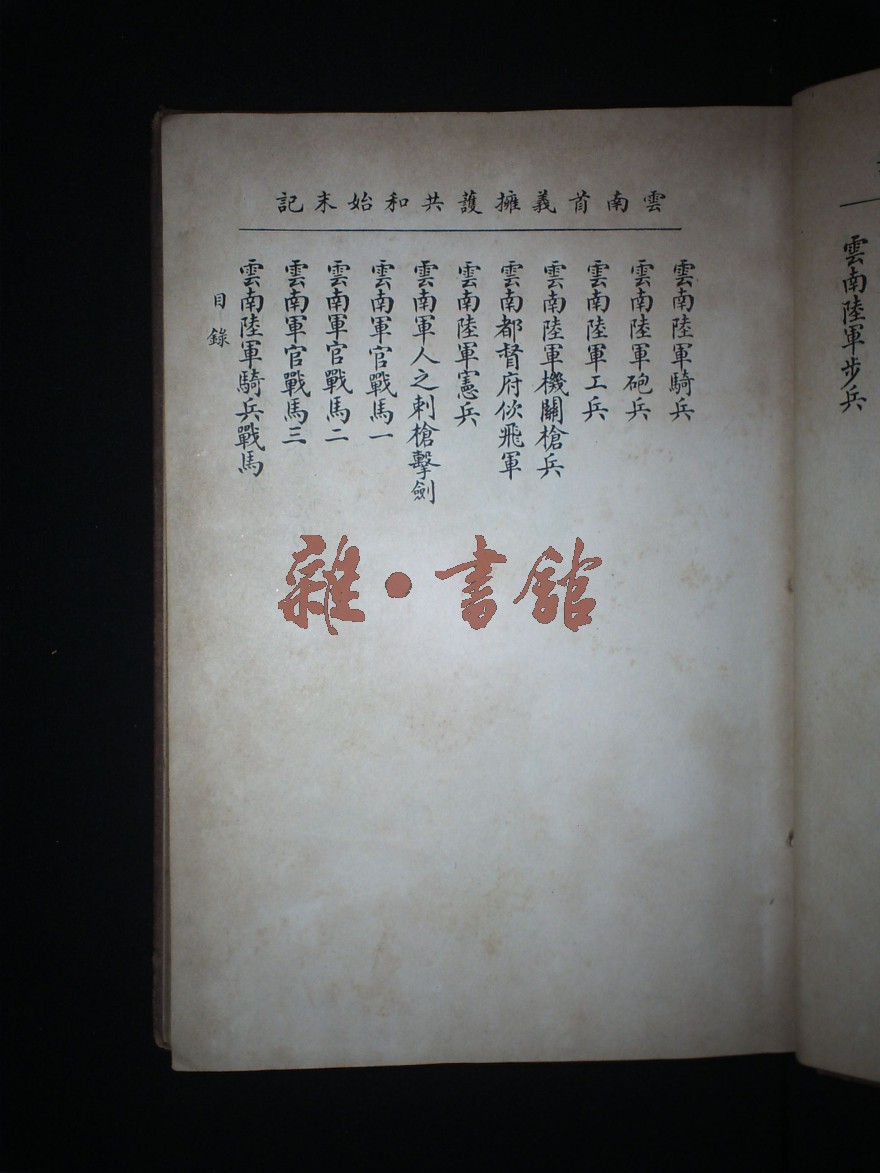 雲南首義擁護共和始末記
雲南陸軍騎兵
雲南陸軍砲兵
雲南陸軍工兵
雲南陸軍機關槍兵
雲南都督府佽飛軍
雲南陸軍憲兵
雲南軍人之刺槍擊劍
雲南軍官戰馬一
雲南軍官戰馬二
雲南軍官戰馬三
雲南陸軍騎兵戰馬
目錄
雲南陸軍步兵
雜·書館